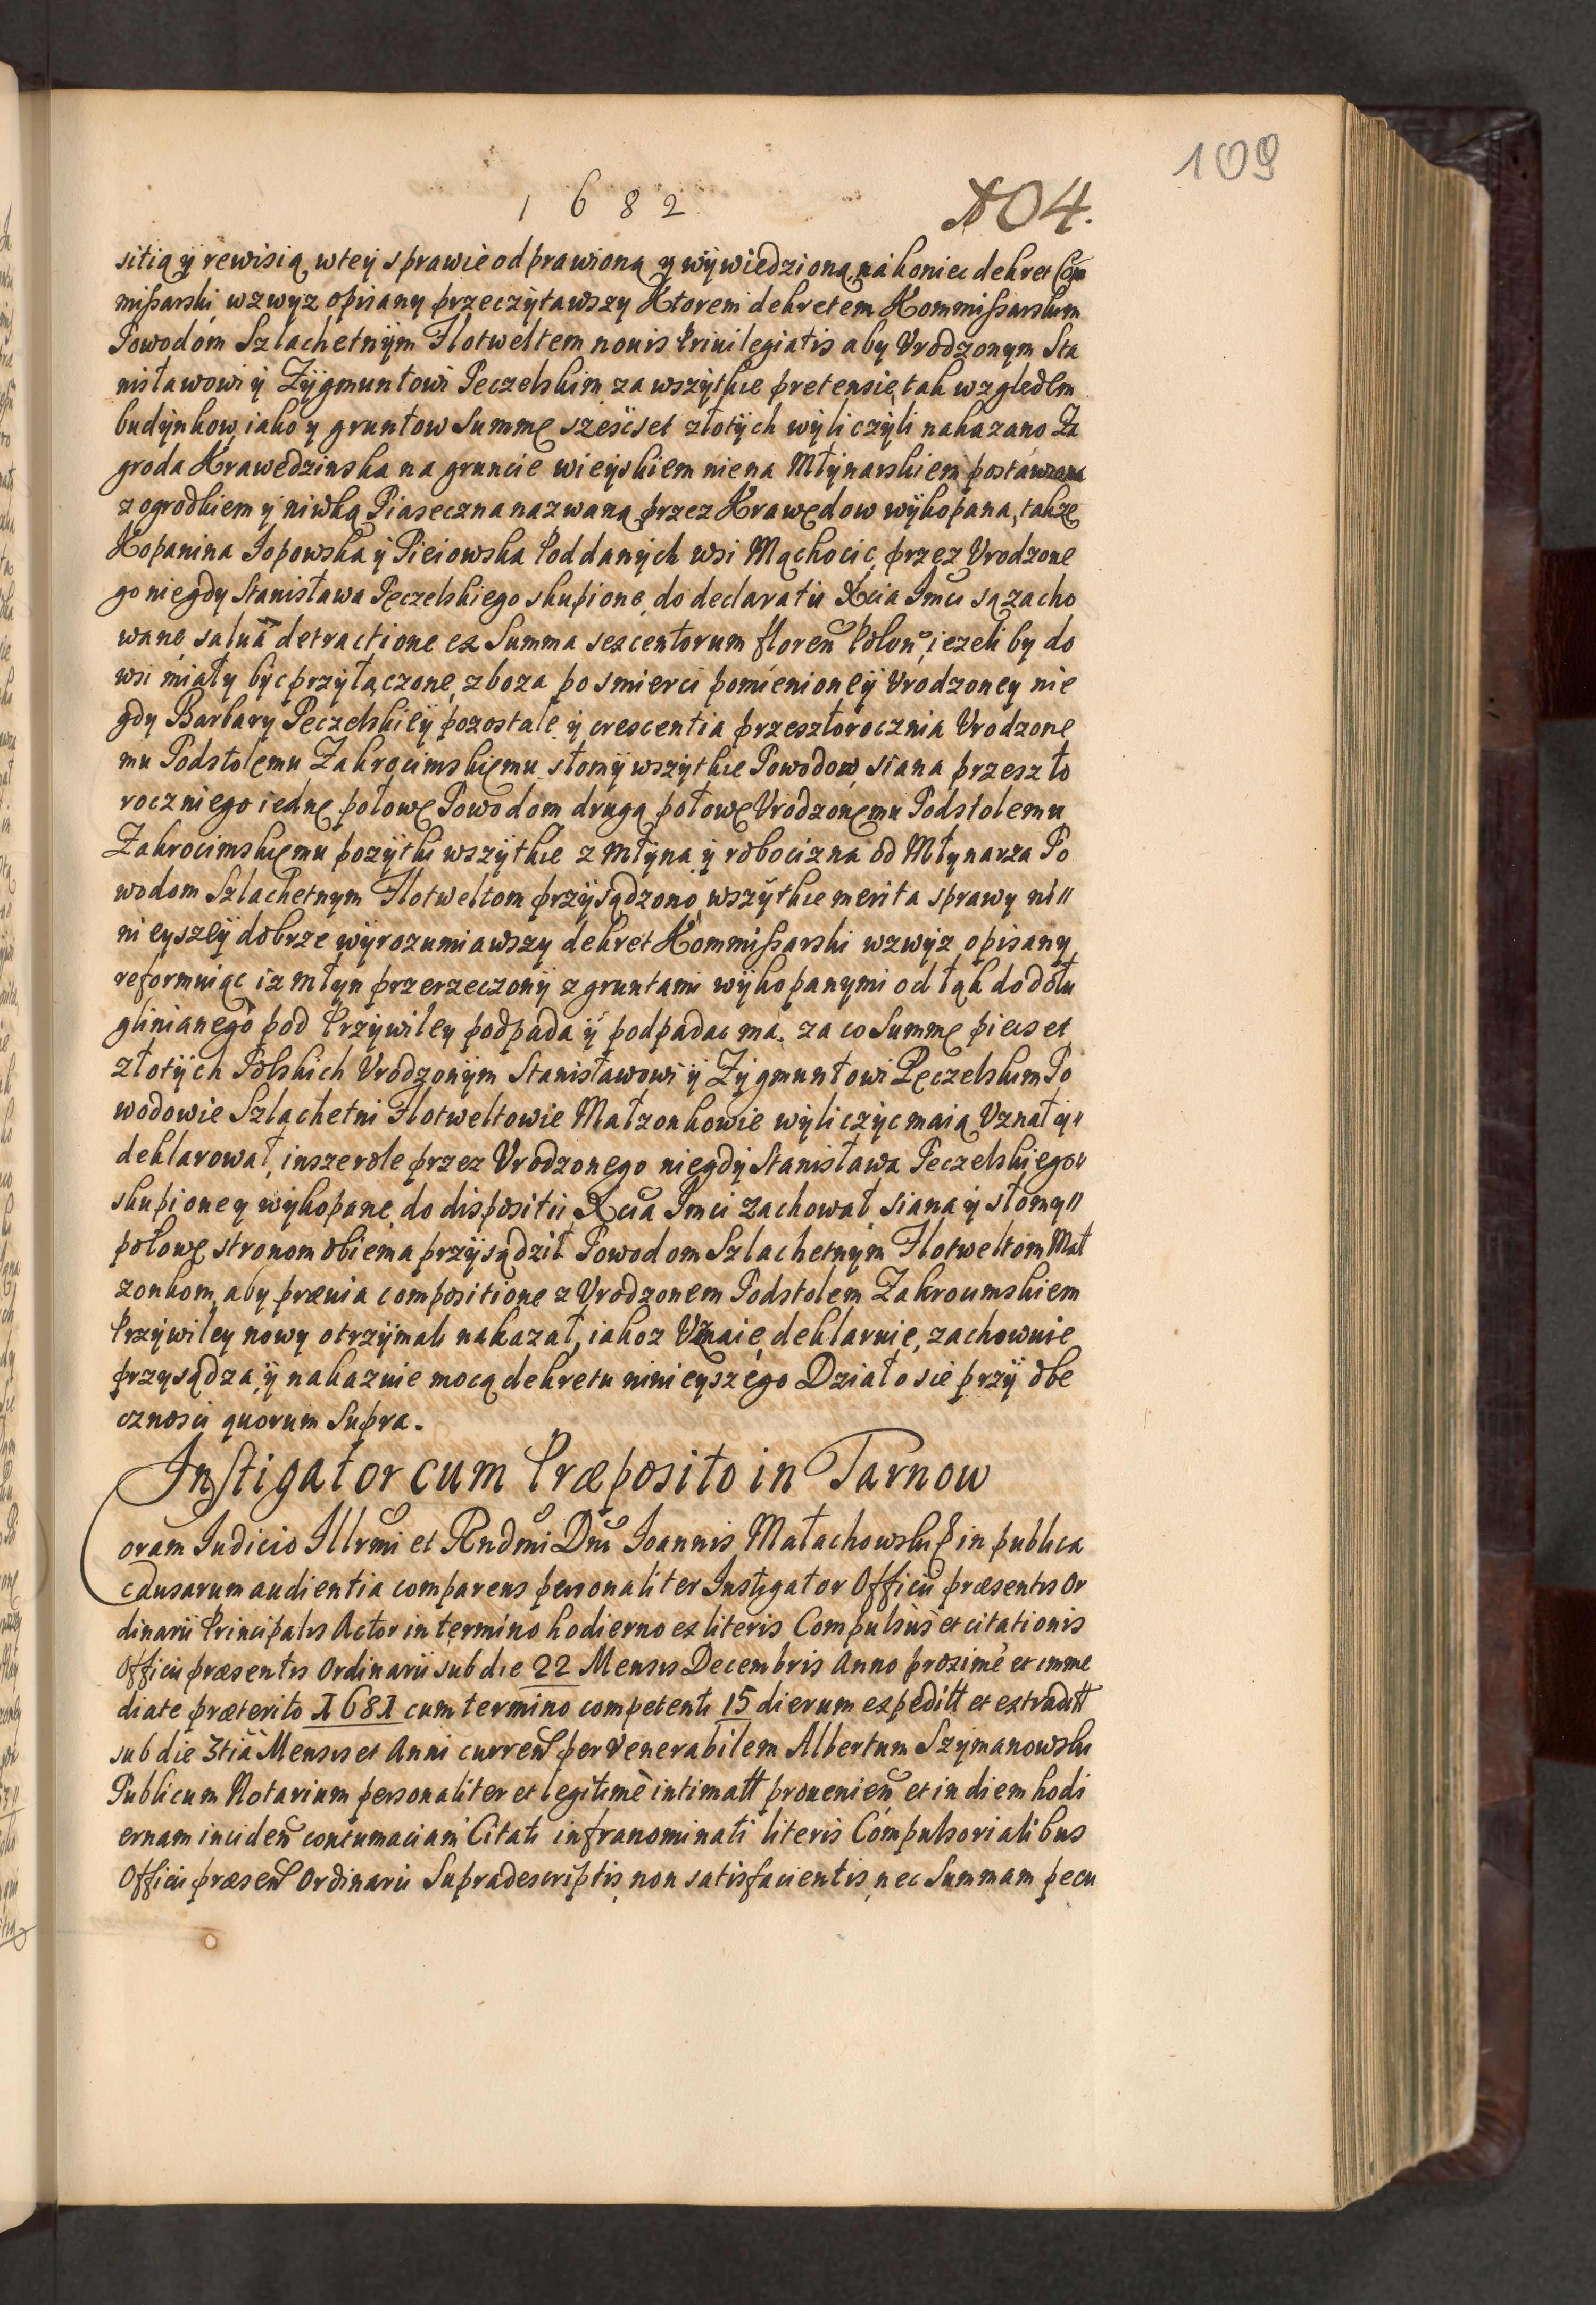 109
1682
104.
sitią ÿ rewisią wteÿ sprawie odprawioną y wÿwiedzioną nakoniec dekret Com
mißarski wzwyz opisany przeczÿtawszy Ktorem dekretem Kommißarskim
Powodom Szlachetnÿm Flotweltem nouis Priuilegiatis aby Vrodzonym Sta
nisławowi ÿ Zÿgmuntowi Peczelskim za wszÿtkie pretensie tak względem
budÿnkow iako y gruntow Summę szescset złotÿch wÿliczÿli nakazano Za
groda Krawedzinska na gruncie wieÿskiem niena Młÿnarskiem postawiona
z ogrodkiem y niwką Piaseczna nazwaną przez Krawędow wÿkopana, takze
Kopanina Jopowska ÿ Pieiowska Poddanÿch wsi Mąchocic przez Vrodzone
go niegdy Stanisława Pęczelskiego skupione, do declaratii Xcia Jmci są zacho
wane, saluâ detractione ex Summa sexcentorum floren Polon, iezeli by do
wsi miałÿ byc przÿłączone, zboza po smierci pomienioneÿ Vrodzoneÿ nie
gdy Barbary Peczelskieÿ pozostałe ÿ crescentia przeszłorocznia Vrodzone
mu Podstolemu Zakrocimskiemu, słomÿ wszytkie Powodow siana przeszło
roczniego iednę połowę Powodom drugą połowę Vrodzonemu Podstolemu
Zakrocimskiemu pozÿtki wszÿtkie z Młÿna ÿ robocizna od Młÿnarza Po
wodom Szlachetnym Flotweltom przÿsądzono, wszÿtkie merita sprawy ni
nieyszeÿ dobrze wÿrozumiawszy dekret Kommißarski wzwÿz opisany
reformuiąc iz Młÿn przerzeczonÿ z gruntami wÿkopanymi od łąk do dołu
glinianego pod Przÿwiley podpada ÿ podpadac ma, za co Summę piecset
złotÿch Polskich Vrodzonÿm Stanisławowi ÿ Zÿgmuntowi Pęczelskim Po
wodowie Szlachetni Flotweltowie Małzonkowie wÿliczÿc maią Vznał ÿ
deklarował, insze role przez Vrodzonego niegdÿ Stanisława Peczelskiego
skupione y wÿkopane, do dispositii Xcia Jmci zachował siana ÿ słomy
połowę stronom obiema przÿsądził Powodom Szlachetnÿm Flotweltom Mał
zonkom, aby præuia compositione z Vrodzonem Podstolem Zakrocimskiem
Przÿwiley nowy otrzÿmali nakazał, iakoz Vznaie, deklaruie, zachowuie
przysądza, ÿ nakazuie mocą dekretu ninieyszego Działo sie przÿ obe
cznosci quorum Supra.
Instigator cum Præposito in Tarnow
Coram Judicio Illrmi et Rndmi Dni Joannis Małachowski in publica
causarum audientia comparens personaliter Instigator Officii præsentis Or
dinarii Principalis Actor in termino hodierno ex literis Compulsûs et citationis
Officii præsentis Ordinarii sub die 22 Mensis Decembris Anno proxime et imme
diate præterito 1681 cum termino competenti 15 dierum expeditt et extraditt
sub die 3tia Mensis et Anni curren per Venerabilem Albertum Szÿmanowski
Publicum Notarium personaliter et legitimè intimatt prouenien et in diem hodi
ernam inciden contumaciam Citati infranominati literis Compulsorialibus
Officii præsen Ordinarii Supradescriptis non satisfacientis, nec Summam pecu